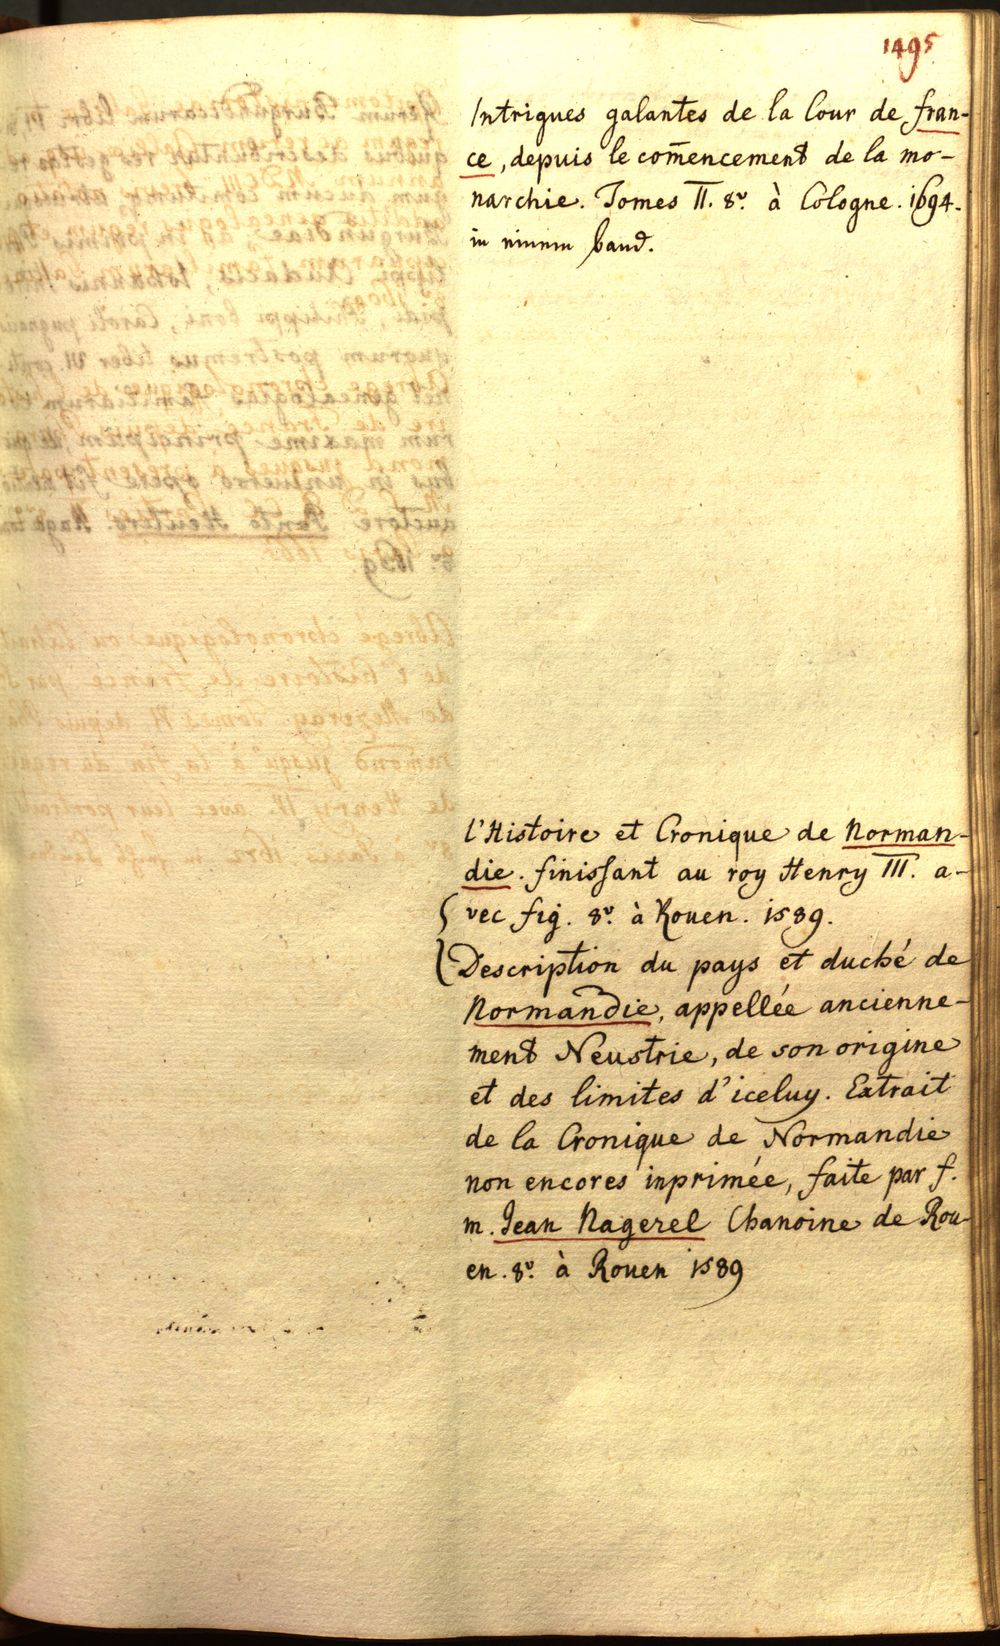 1495
Intrigues galantes de la Cour de fran-
ce, depuis le com̄encement de la mo-
narchie. Tomes II. 8º. à Cologne. 1694.
in einem band.
l'Histoire et Cronique de Norman-
die. finissant au roy Henry III. a-
vec fig. 8º. à Rouen. 1589.
Description du pays et duché de
Normandie, appellée ancienne-
ment Neustrie, de son origine
et des limites d'iceluy. Extrait
de la Cronique de Normandie
non encores inprimée, faite par f.
m. Jean Nagerel Chanoine de Rou-
en. 8º. à Rouen 1589